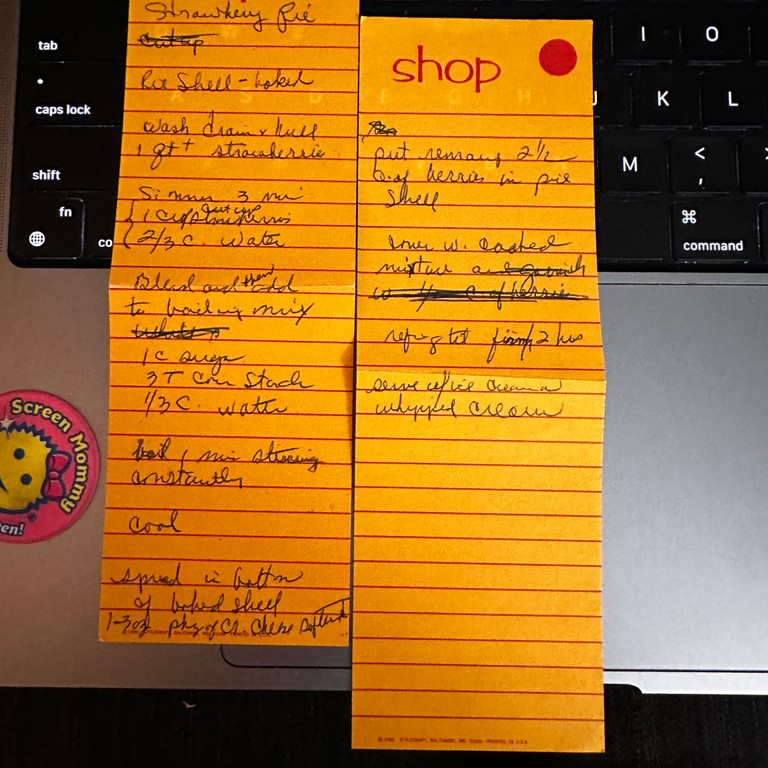 Strawberry Pie
cut up
Pie Shell - baked
Wash drain & hull
1 qt + strawberries
Simmer 3 mi
1 cup cut up berries
2/3 C Water
Blend and then add
to boiling mix
1 C sugar
3 T Corn Starch
1/3 C. water
boil 1 min stirring
constantly
Cool
spread in bottom
of baked shell
1-3oz pkg of Cr. Cheese Softened
shop
put remang 2 1/2
C. of berries in pie
Shell
cover w. cooked
mixture and garnish
w of berries
refrig til firm, 2 hrs
serve w/ice cream or
whipped cream
tab
caps lock
shift
fn
co
A S D F G H J K L
I O
M < ,
⌘
command
Screen Mommy
en!